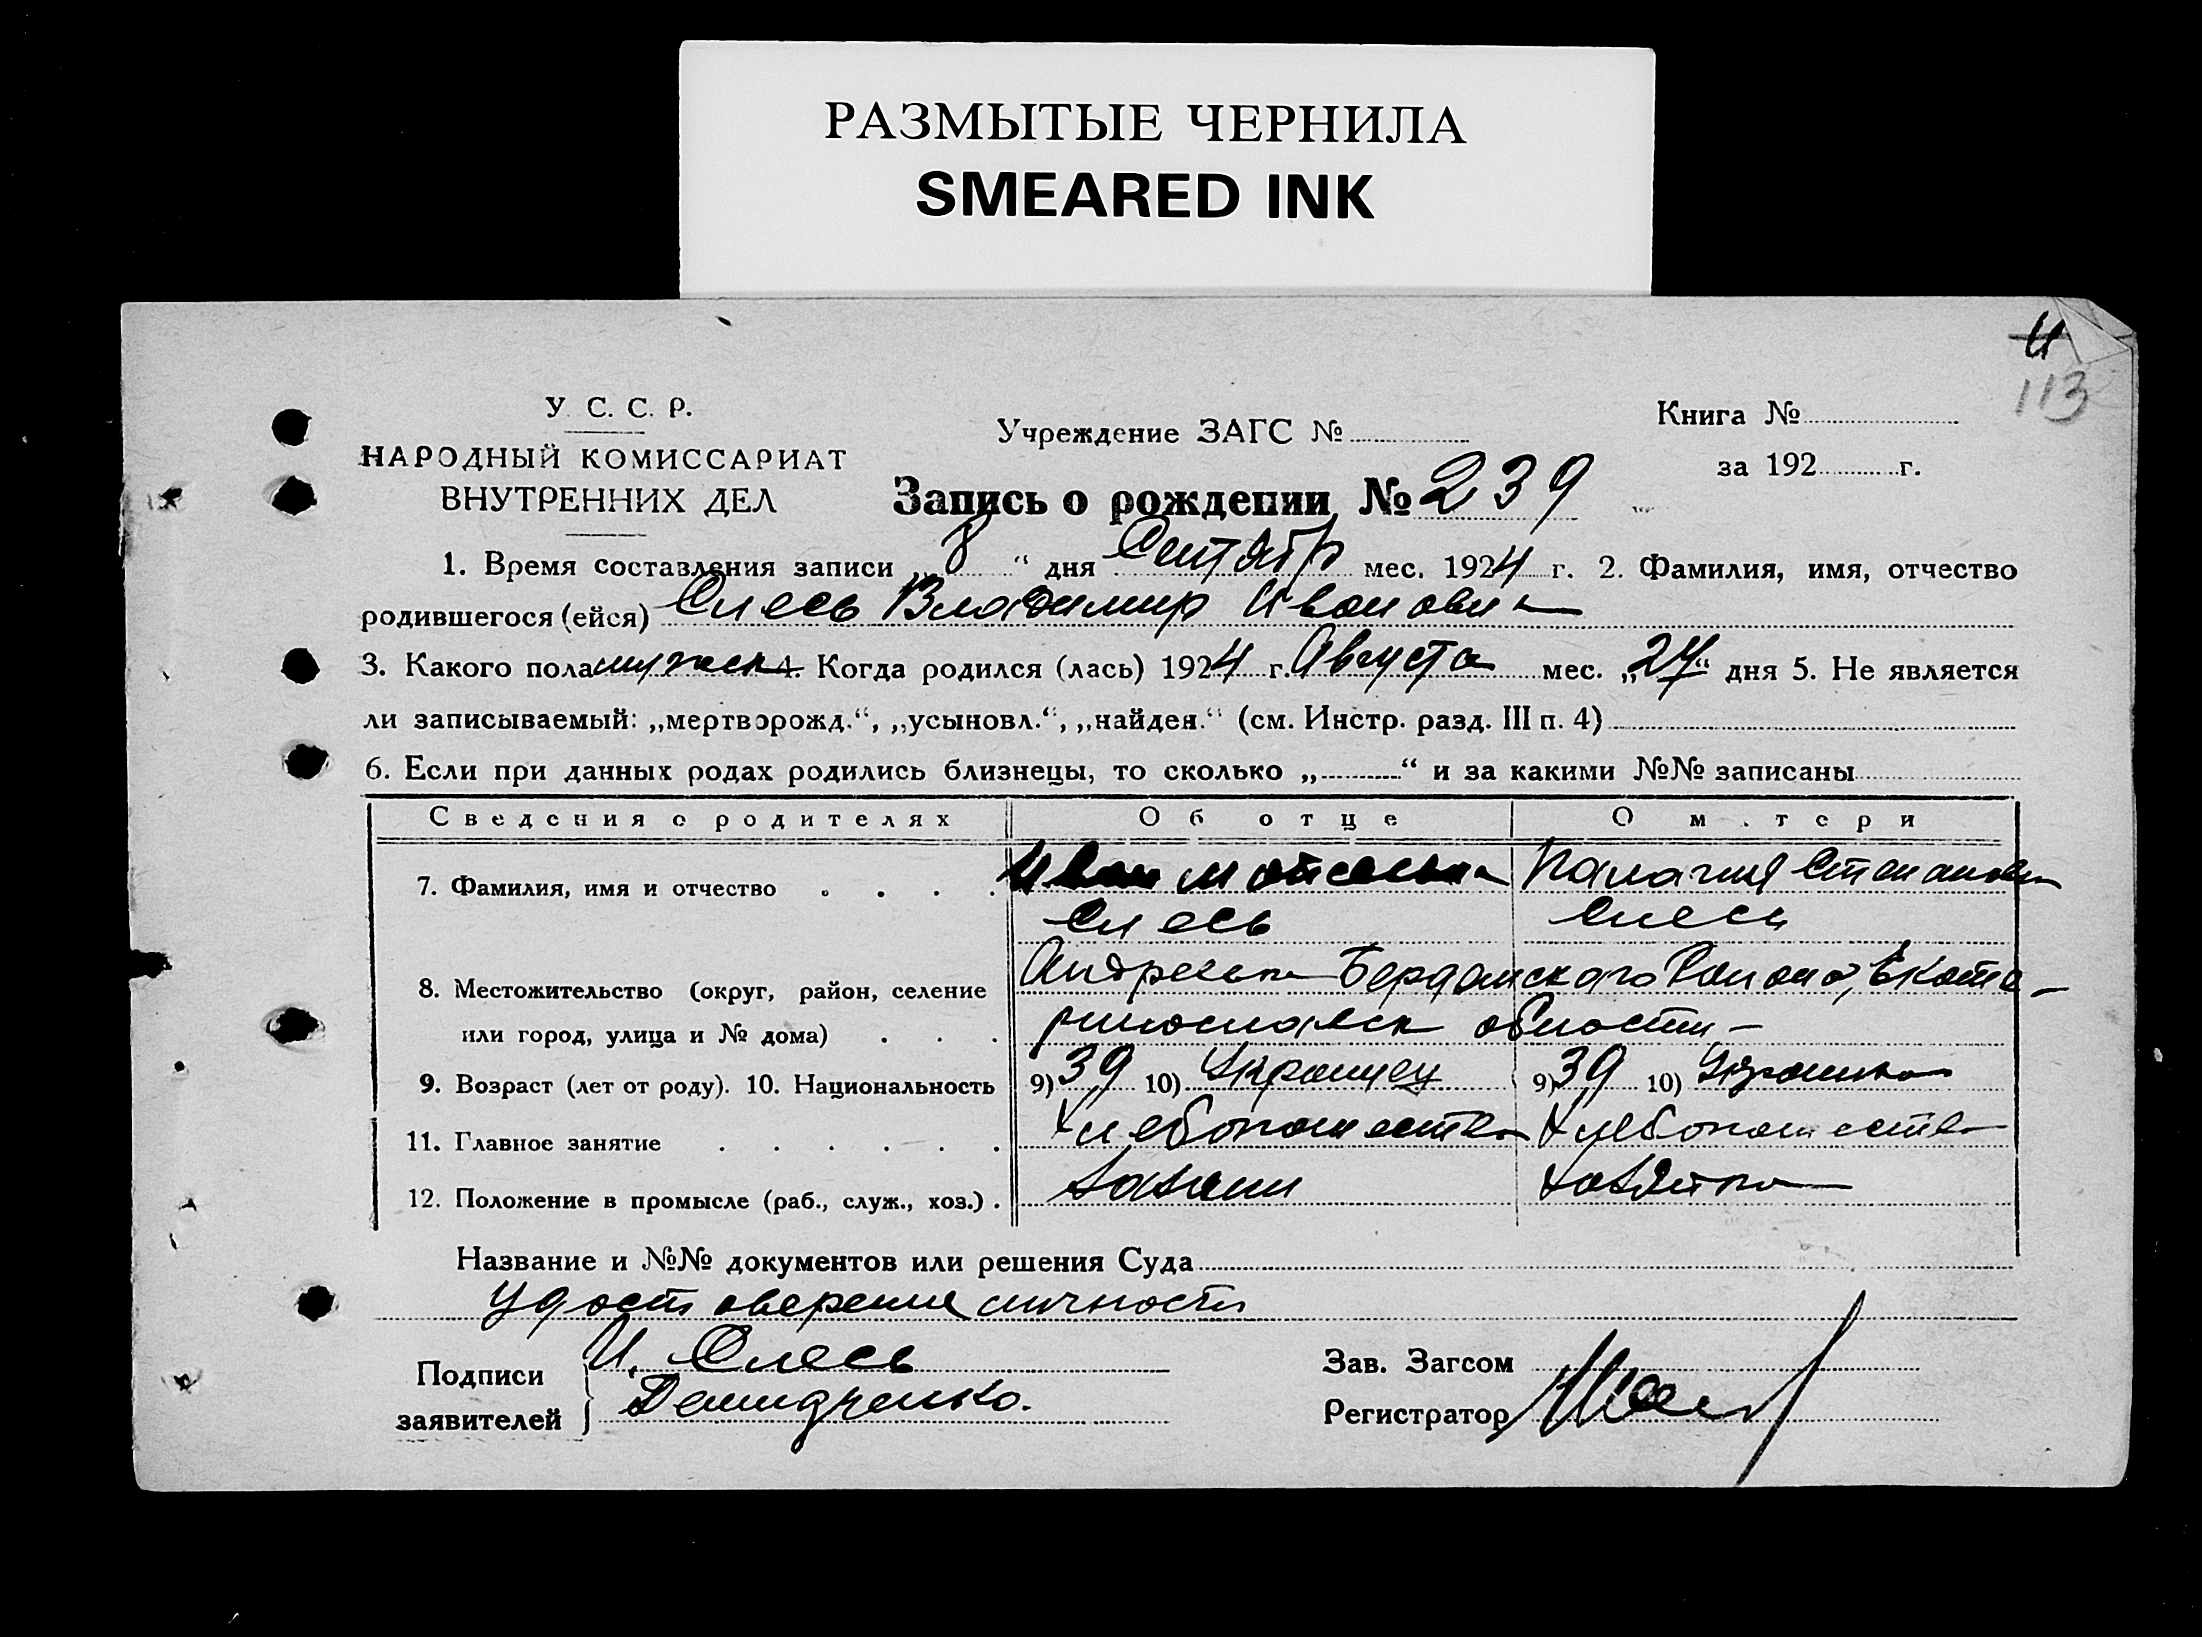 РАЗМЫТЫЕ ЧЕРНИЛА
SMEARED INK
113
У. С. С. Р.
НАРОДНЫЙ КОМИССАРИАТ
ВНУТРЕННИХ ДЕЛ
Учреждение ЗАГС №
Книга №
за 192 г.
Запись о рождении № 239
1. Время составления записи „ 8 “ дня Сентябр мес. 1924 г. 2. Фамилия, имя, отчество
родившегося (ейся) Слесь Владимир Иванович
3. Какого пола мужск 4. Когда родился (лась) 1924 г. Августа мес. „27“ дня 5. Не является
ли записываемый: „мертворожд.“, „усыновл.“, „найден.“ (см. Инстр. разд. III п. 4)
6. Если при данных родах родились близнецы, то сколько „ “ и за какими №№ записаны
Сведения о родителях Об отце О матери
7. Фамилия, имя и отчество . . . . Иван Палагия Степановн
Слесь Слесь
8. Местожительство (округ, район, селение Бердянского Района, Екате-
или город, улица и № дома) . . . ринославск области -
9. Возраст (лет от роду). 10. Национальность 9) 39 10) Украинец 9) 39 10) Украинка
11. Главное занятие . . . . . . Хлебопашество Хлебопашество
12. Положение в промысле (раб., служ., хоз.) . хозяин хозяйка
Название и №№ документов или решения Суда
Удостоверение личности
Подписи заявителей } И. Слесь
Демидченко.
Зав. Загсом
Регистратор